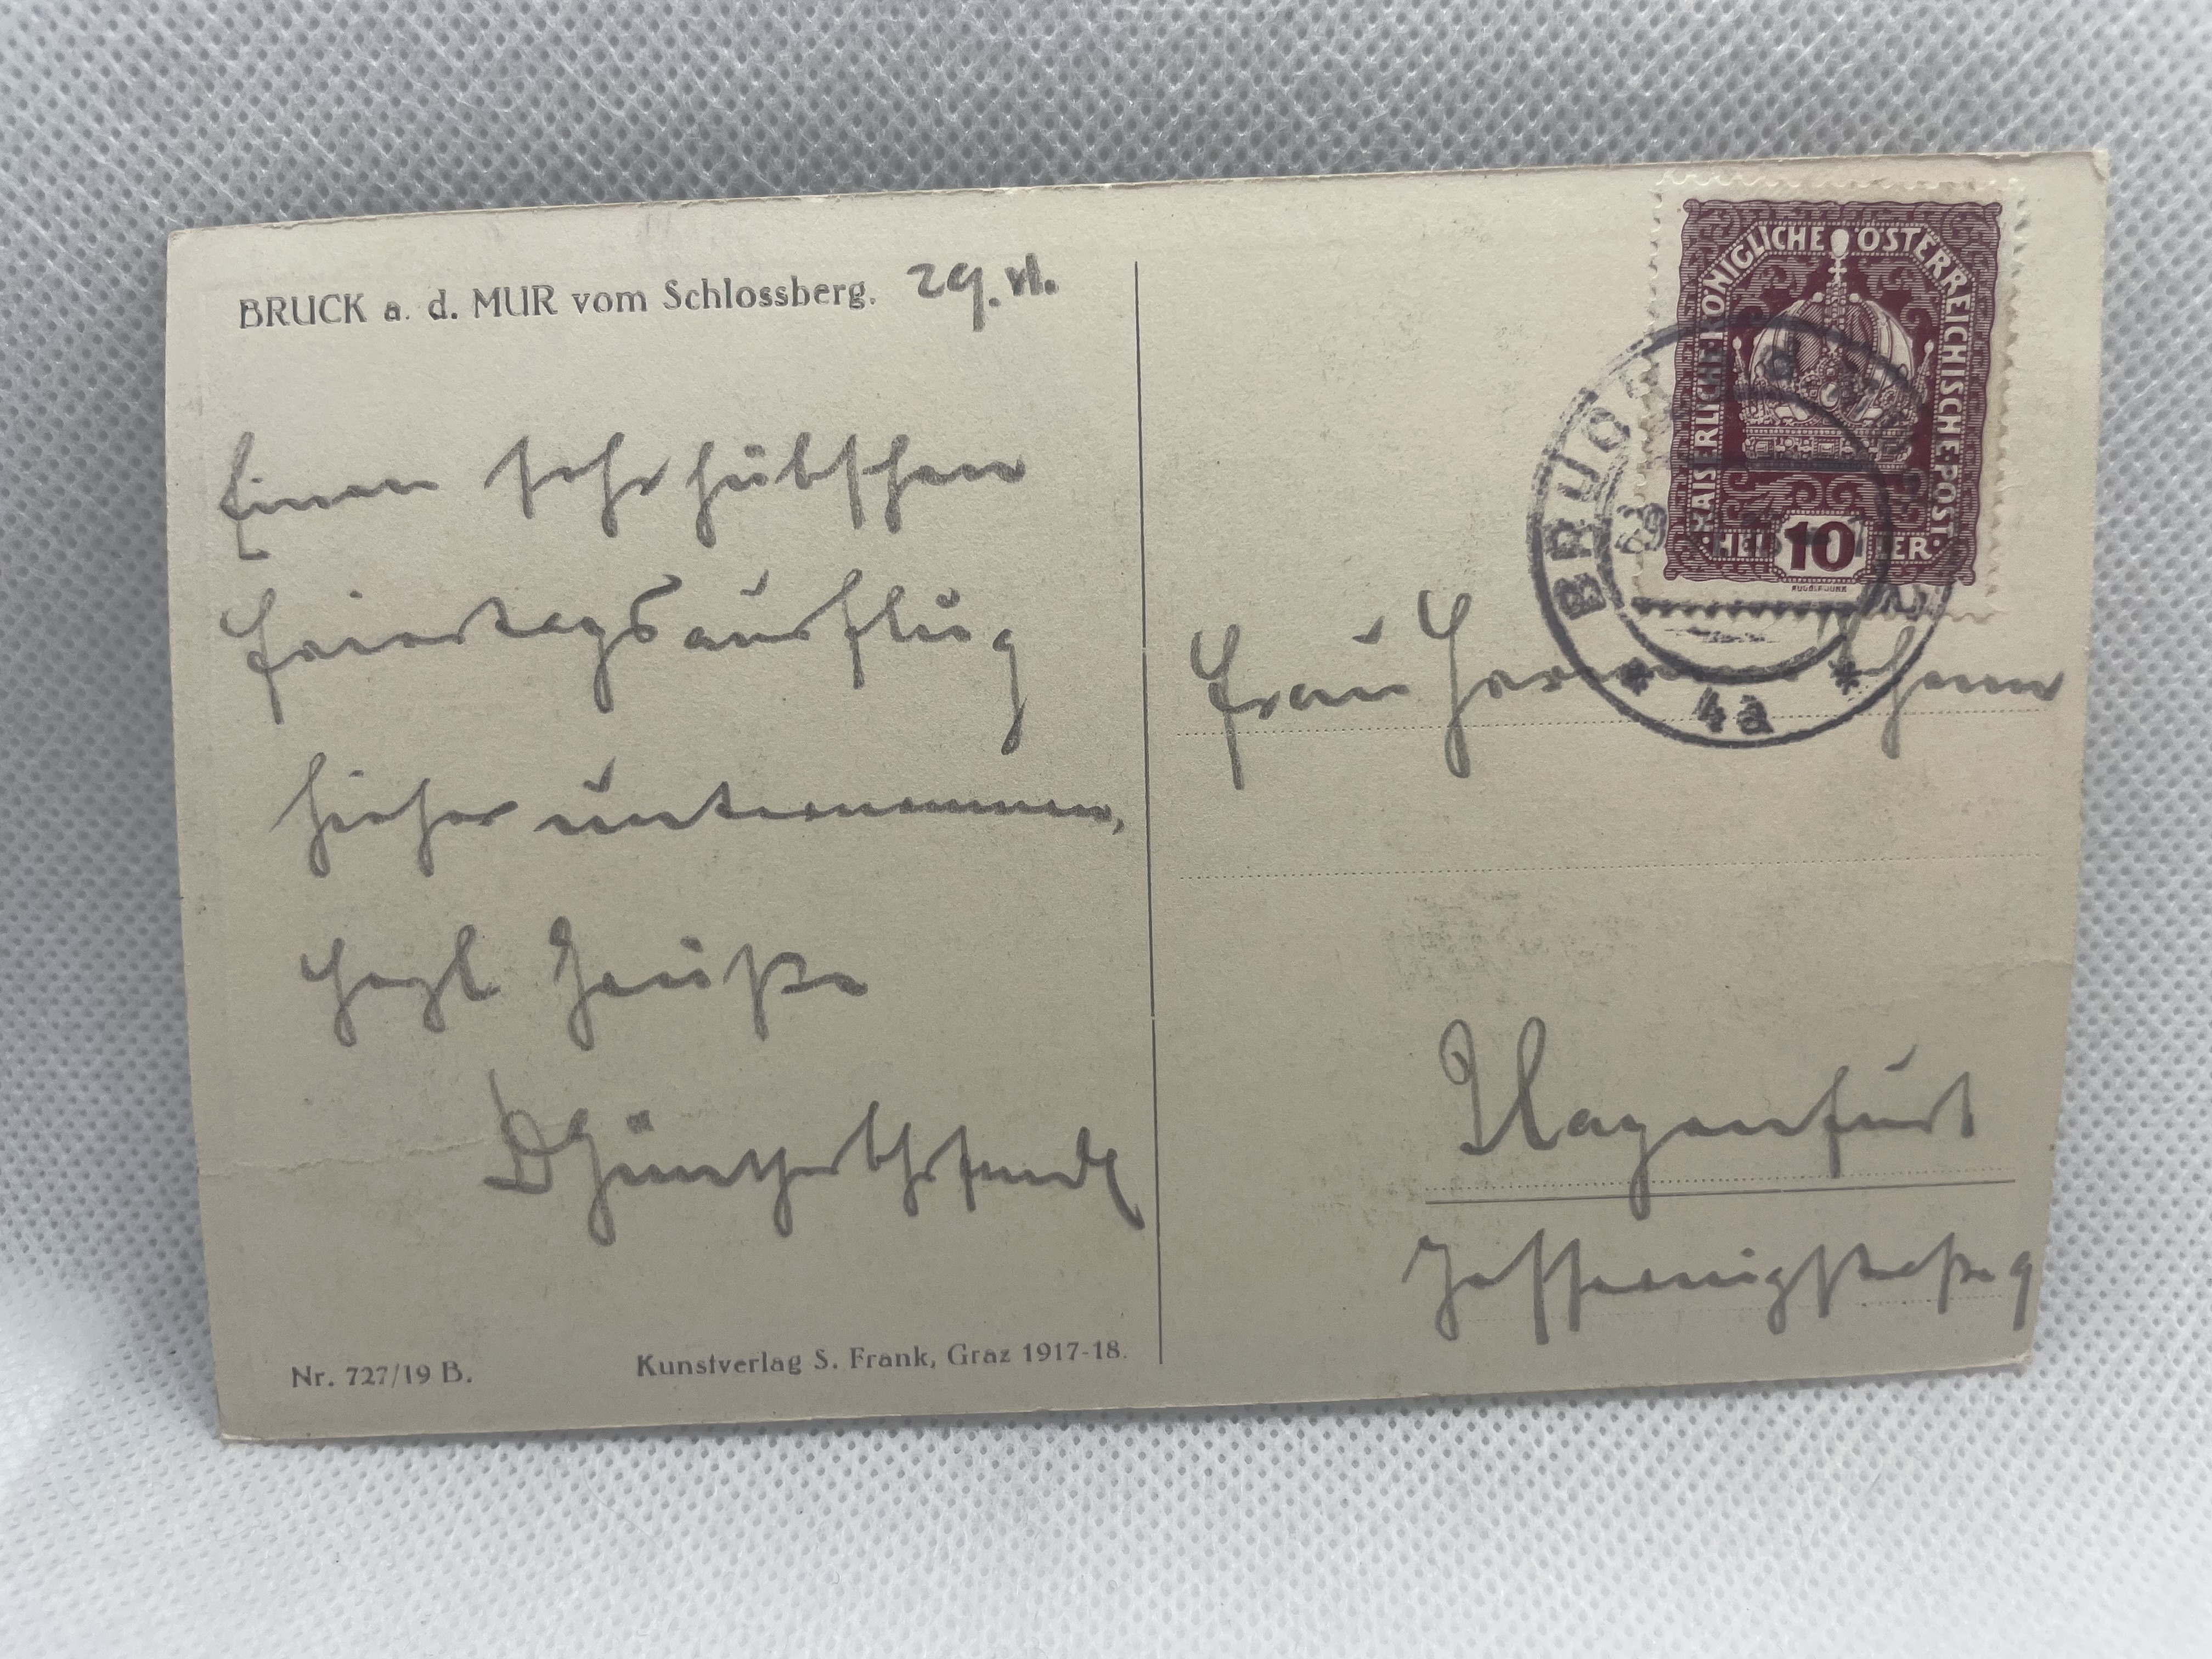 BRUCK a. d. MUR vom Schlossberg. 29. VI.
Einen sehr hübschen
Feiertagsausflug
hieher unternommen,
Herzl Grüße
KAISERLICH·KÖNIGLICHE·ÖSTERREICHISCHE·POST·
HELLER
10
BRUCK
4a
Frau
Klagenfurt
9
Nr. 727/19 B.
Kunstverlag S. Frank, Graz 1917-18.